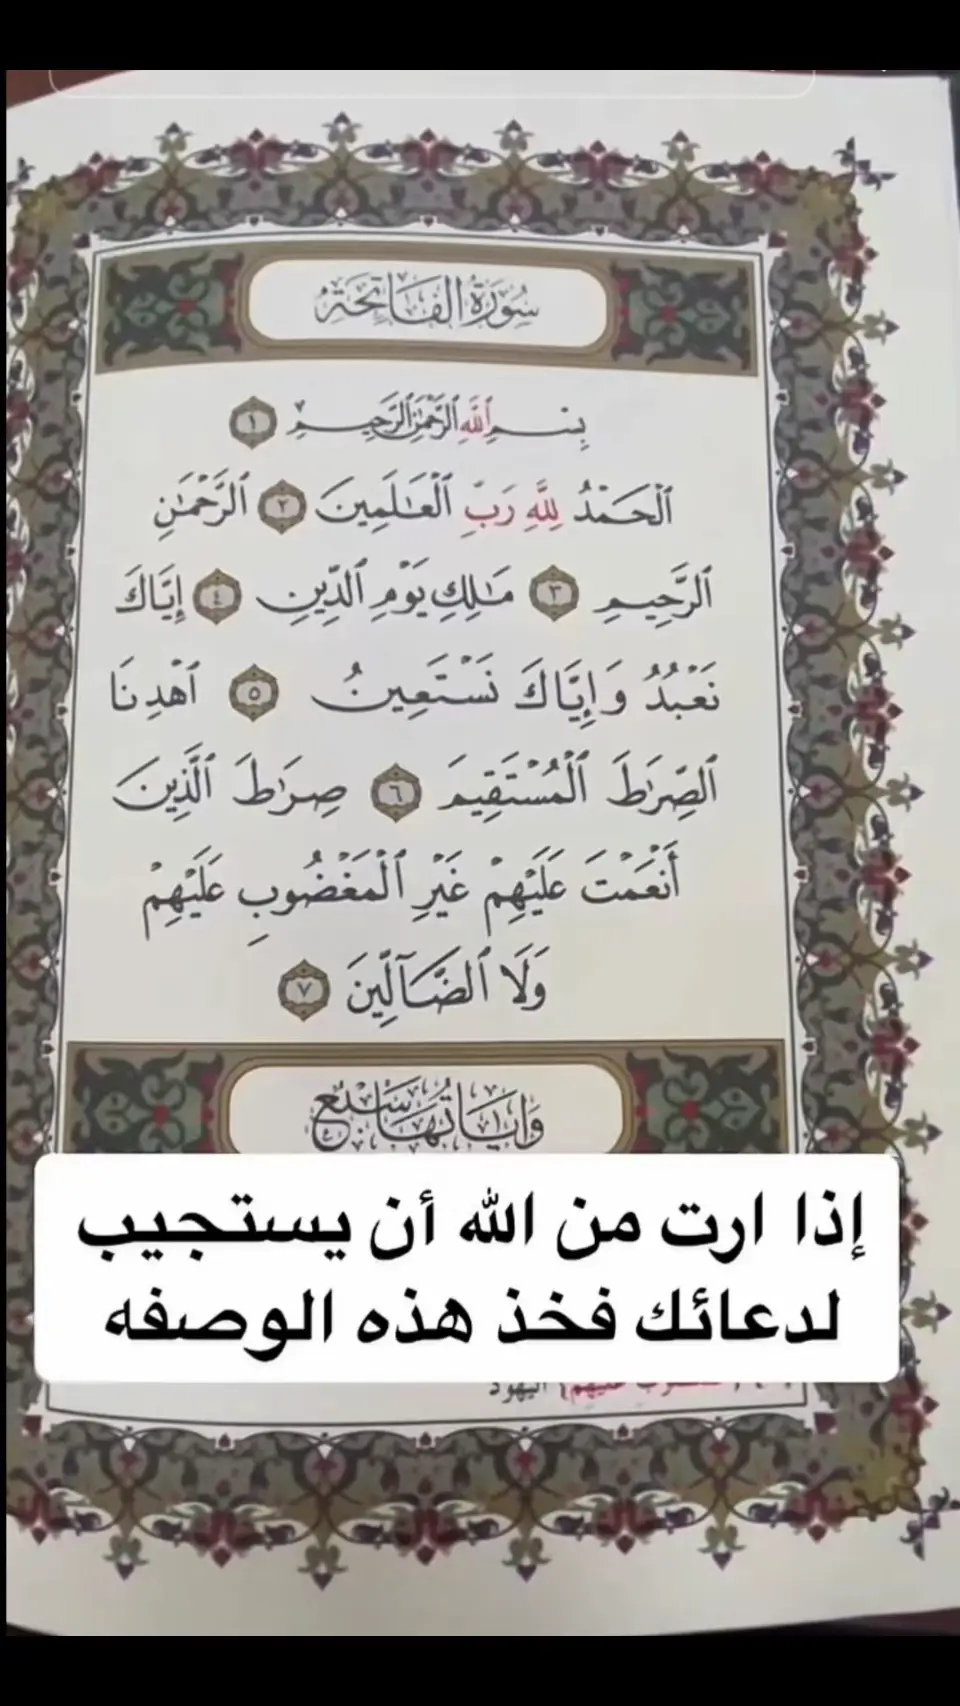 سُورَةُ الفَاتِحَةِ
بِسْمِ ٱللَّهِ ٱلرَّحْمَٰنِ ٱلرَّحِيمِ ١
ٱلْحَمْدُ لِلَّهِ رَبِّ ٱلْعَٰلَمِينَ ٢ ٱلرَّحْمَٰنِ
ٱلرَّحِيمِ ٣ مَٰلِكِ يَوْمِ ٱلدِّينِ ٤ إِيَّاكَ
نَعْبُدُ وَإِيَّاكَ نَسْتَعِينُ ٥ ٱهْدِنَا
ٱلصِّرَٰطَ ٱلْمُسْتَقِيمَ ٦ صِرَٰطَ ٱلَّذِينَ
أَنْعَمْتَ عَلَيْهِمْ غَيْرِ ٱلْمَغْضُوبِ عَلَيْهِمْ
وَلَا ٱلضَّآلِّينَ ٧
وَآيَاتُهَا سَبْعٌ
إذا ارت من الله أن يستجيب
لدعائك فخذ هذه الوصفه
عليهم} اليهود